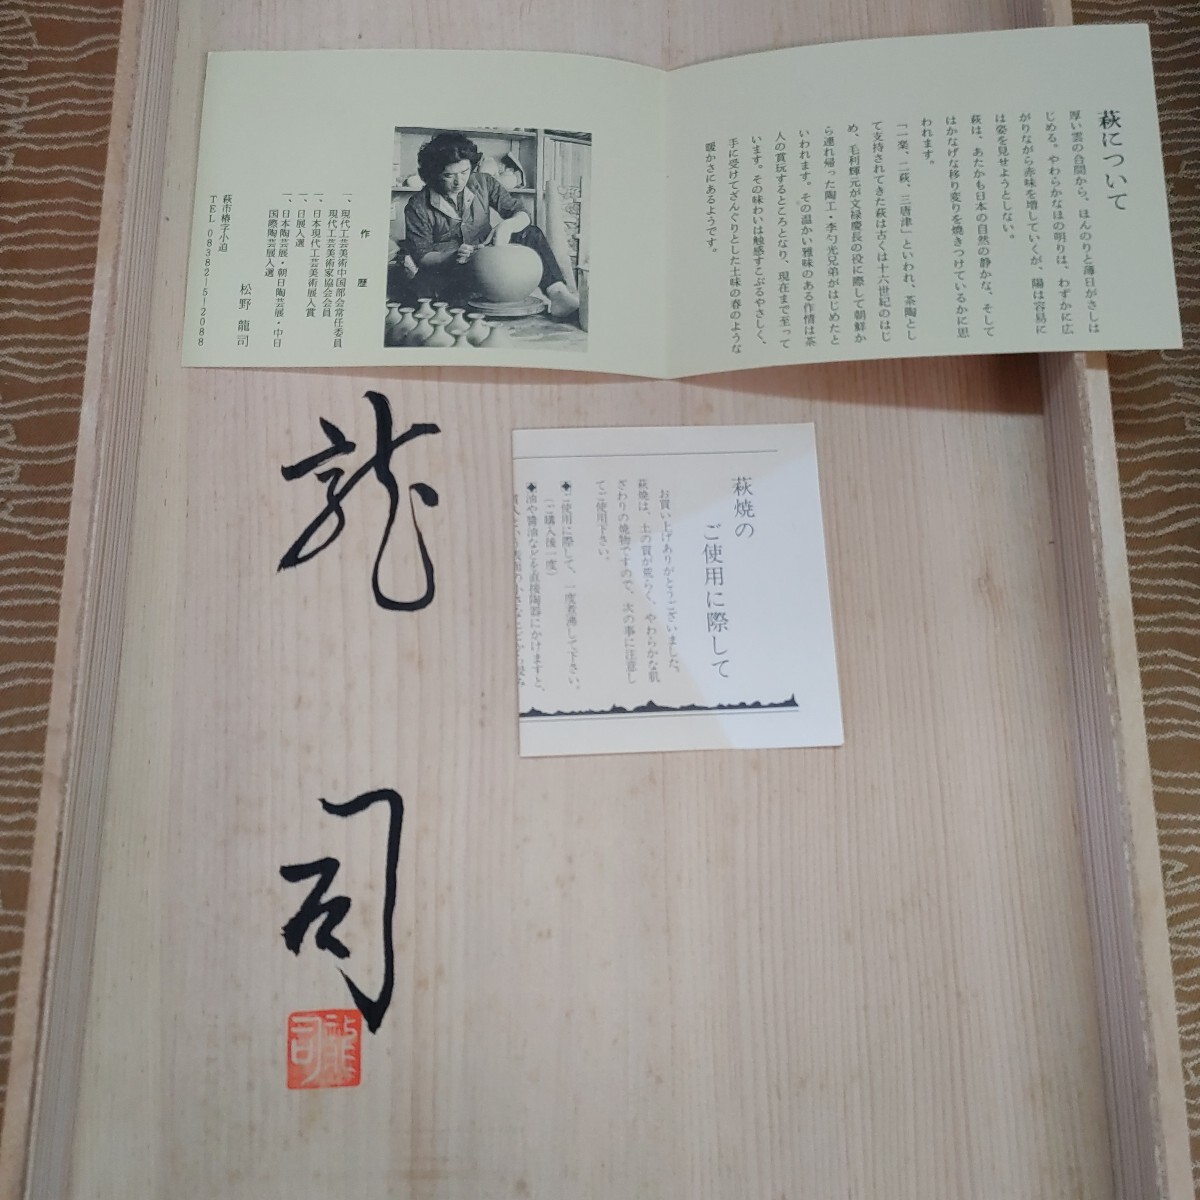 萩について
厚い雲の合間から、ほんのりと薄日がさしは
じめる。やわらかなほの明りは、わずかに広
がりながら赤味を増していくが、陽は容易に
は姿を見せようとしない。
萩は、あたかも日本の自然の静かな、そして
はかなげな移り変りを焼きつけているかに思
われます。
「一楽、二萩、三唐津」といわれ、茶陶とし
て支持されてきた萩は古くは十六世紀のはじ
め、毛利輝元が文禄慶長の役に際して朝鮮か
ら連れ帰った陶工・李勺光兄弟がはじめたと
いわれます。その温かい雅味のある作情は茶
人の賞玩するところとなり、現在まで至って
います。その味わいは触感すこぶるやさしく、
手に受けてざんぐりとした土味の春のような
暖かさにあるようです。
作歴
一、現代工芸美術中国部会常任委員
現代工芸美術家協会会員
一、日本現代工芸美術展入賞
一、日展入選
一、日本陶芸展・朝日陶芸展・中日
国際陶芸展入選
松野龍司
萩市椿字小迫
TEL 08382-5-2088
萩焼の
ご使用に際して
お買い上げありがとうございました。
萩焼は、土の質が荒らく、やわらかな肌
ざわりの焼物ですので、次の事に注意し
てご使用下さい。
◆ご使用に際して、一度煮沸して下さい。
(ご購入後一度)
◆油や醬油などを直接陶器にかけますと、
龍司
龍司